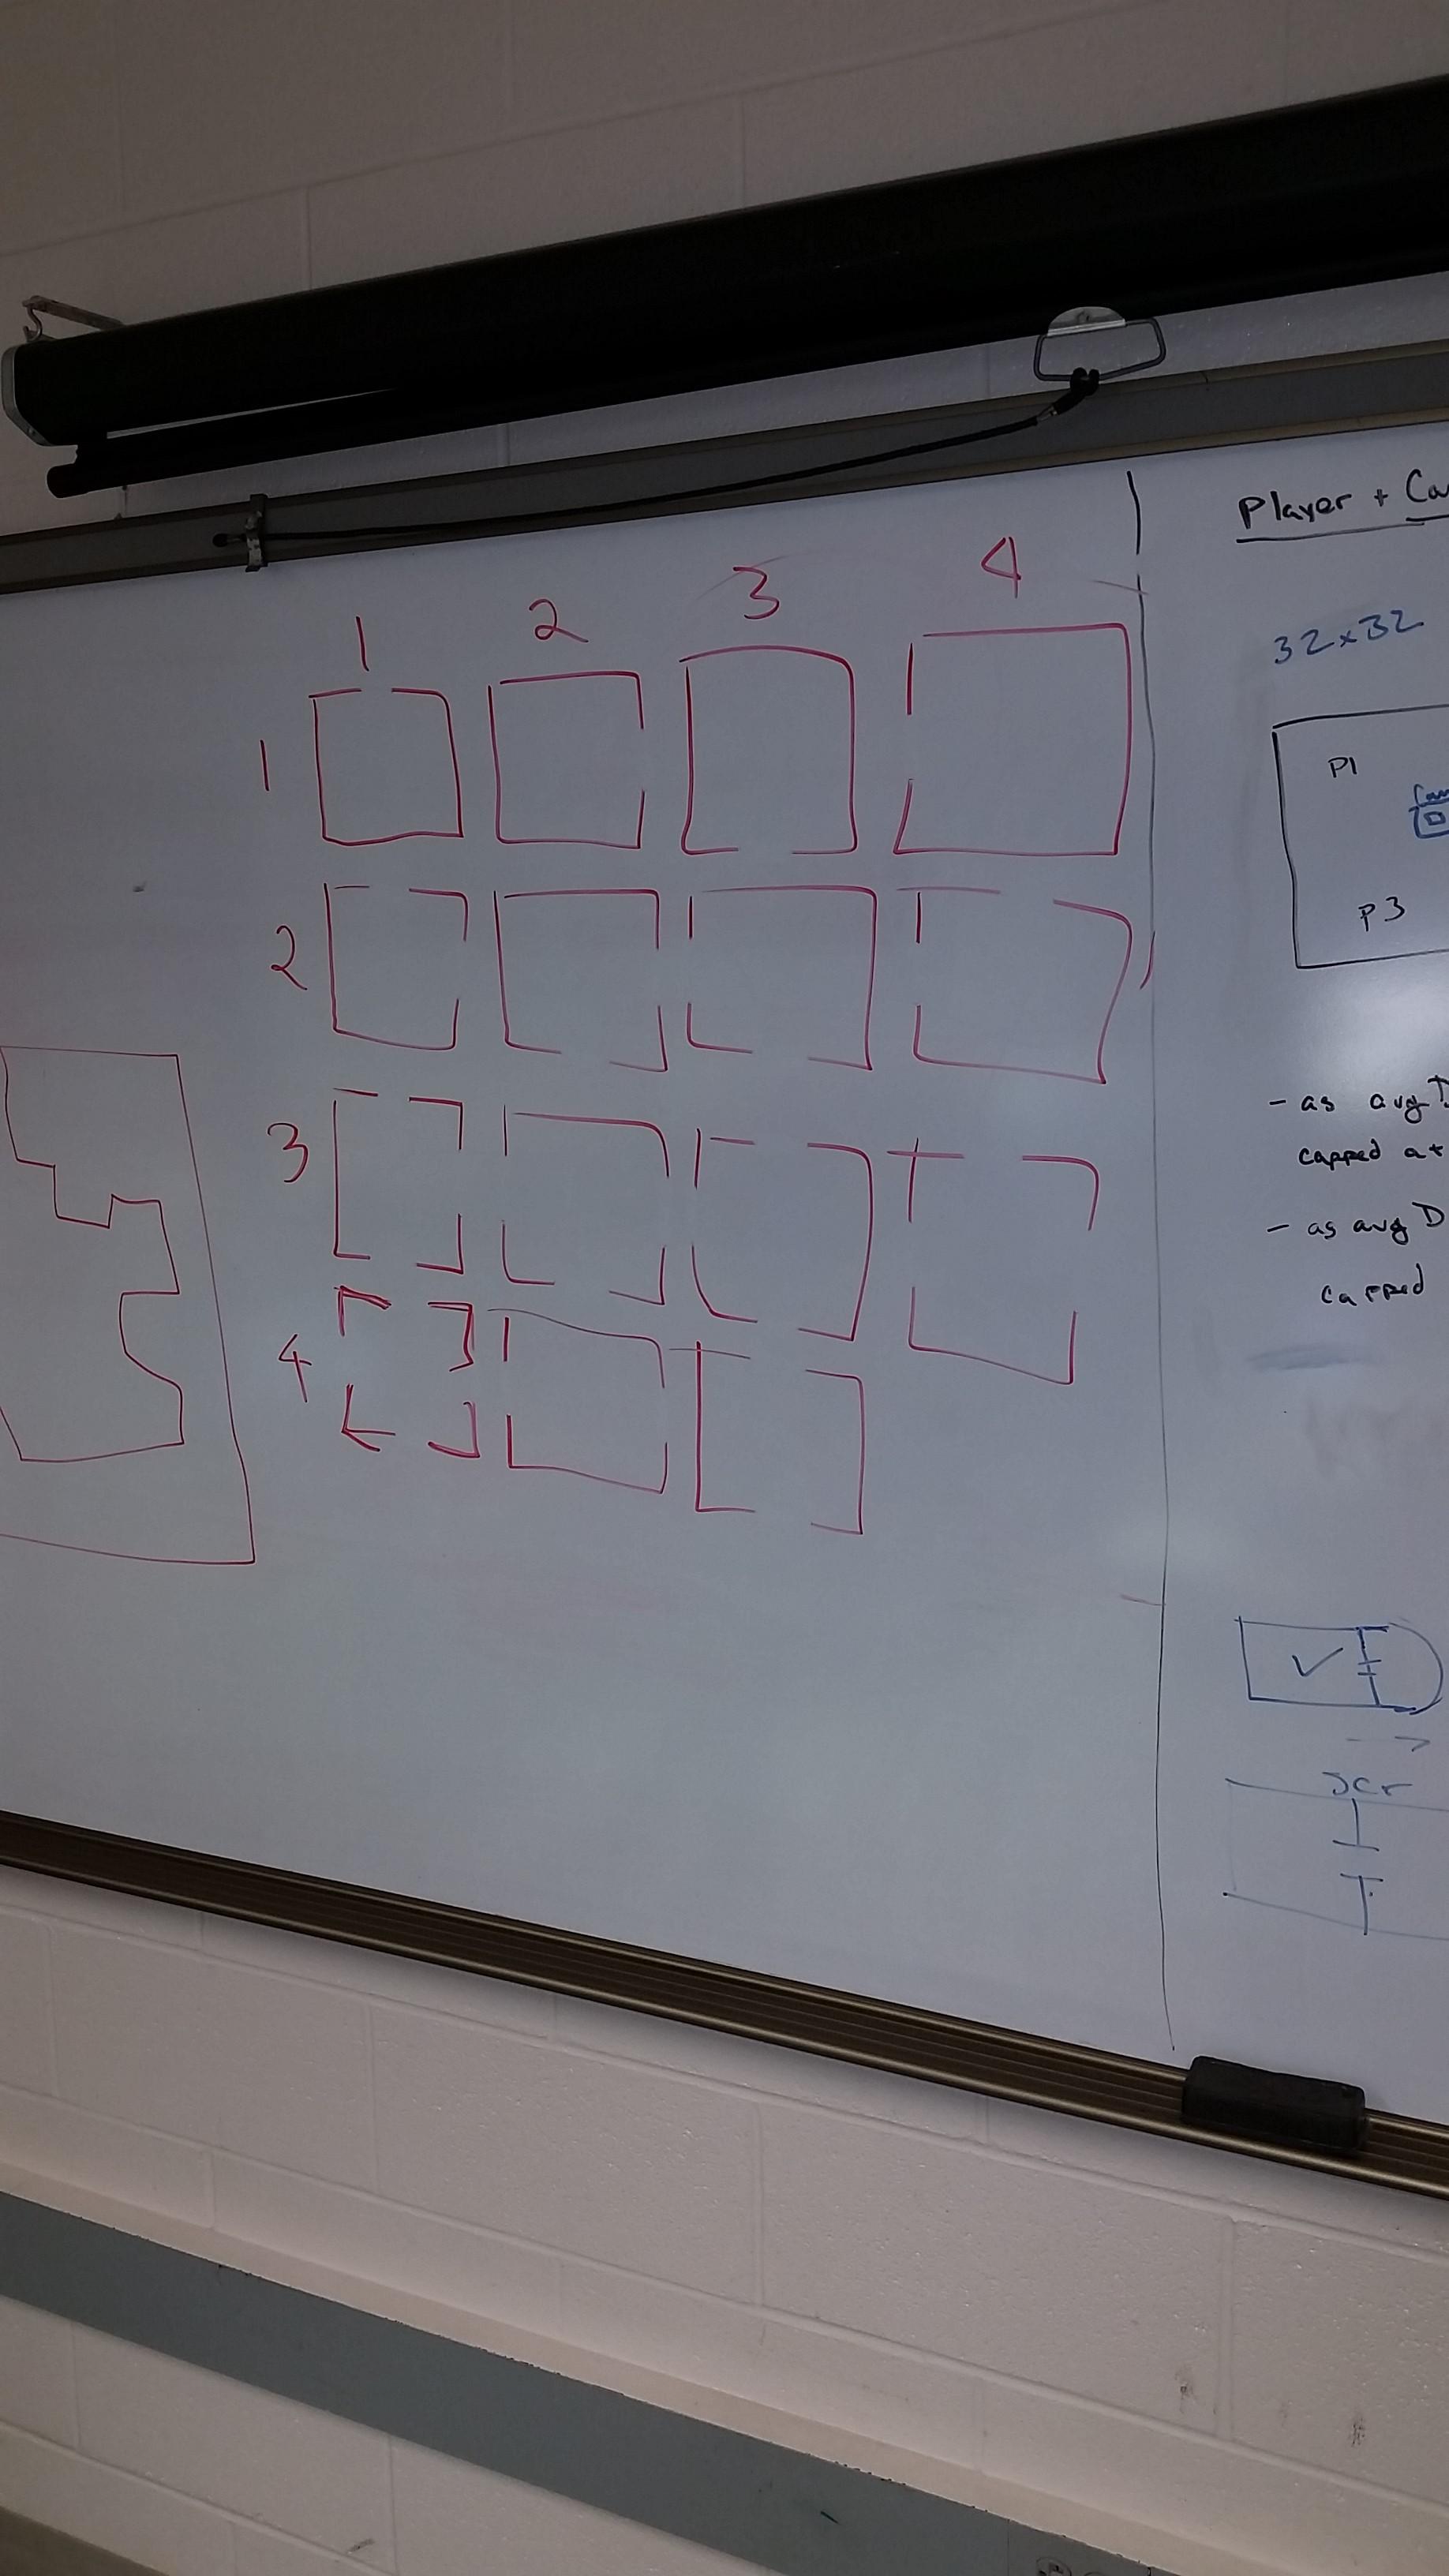 1 2 3 4
1
2
3
4
Player +
32x32
P1
P3
- as avg
capped at
- as avg D
capped